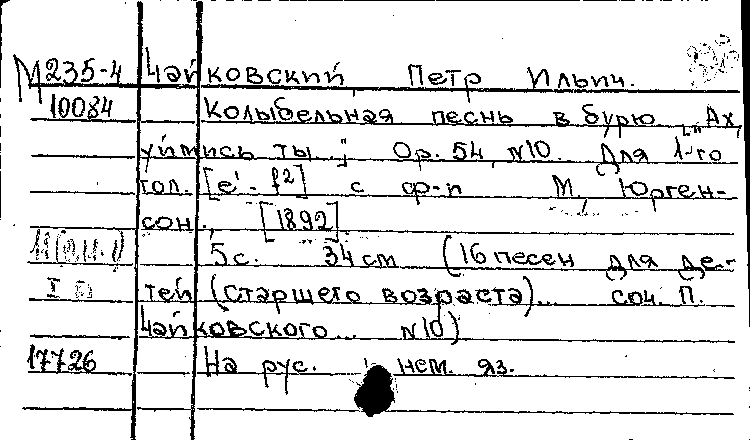 М235-4 Чайковский, Петр Ильич.
10084 Колыбельная песнь в бурю „Ах,
уймись ты..."; Op. 54, №10. Для 1-го
гол. [e¹- f²] с ф-п М., Юрген-
сон, [1892].
5с. 34 см (16 песен для де-
I п тей (старшего возраста)... соч. П.
Чайковского... №10)
17726 На рус. и нем. яз.